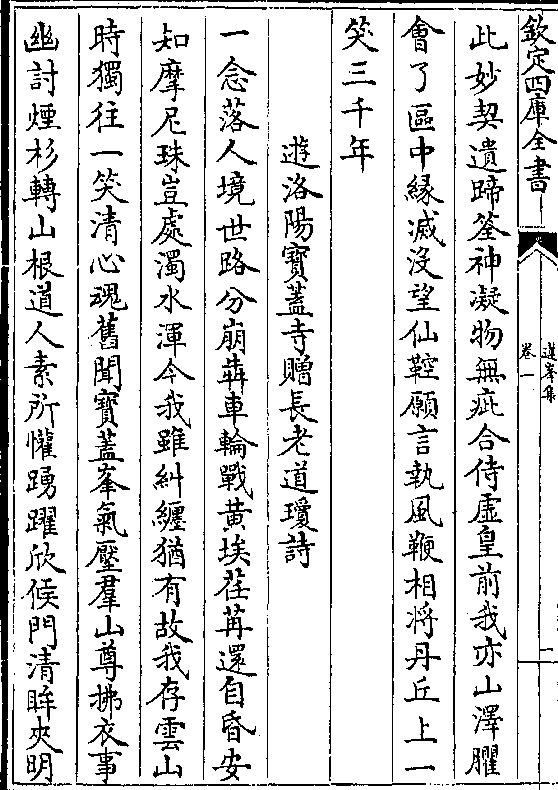 欽定四庫全書
道峯集
卷一
二
此妙契遺蹄筌神凝物無疵合侍虛皇前我亦山澤臞
會了區中緣滅没望仙鞚願言執風鞭相將丹丘上一
笑三千年
遊洛陽寶蓋寺贈長老道瓊詩
一念落人境世路分崩犇車輪戰黄埃荏苒還自昏安
知摩尼珠豈處濁水渾今我雖糾纒猶有故我存雲山
時獨往一笑清心魂舊聞寶蓋峯氣壓羣山尊拂衣事
幽討煙杉轉山根道人素所懽踴躍欣候門清眸夾明